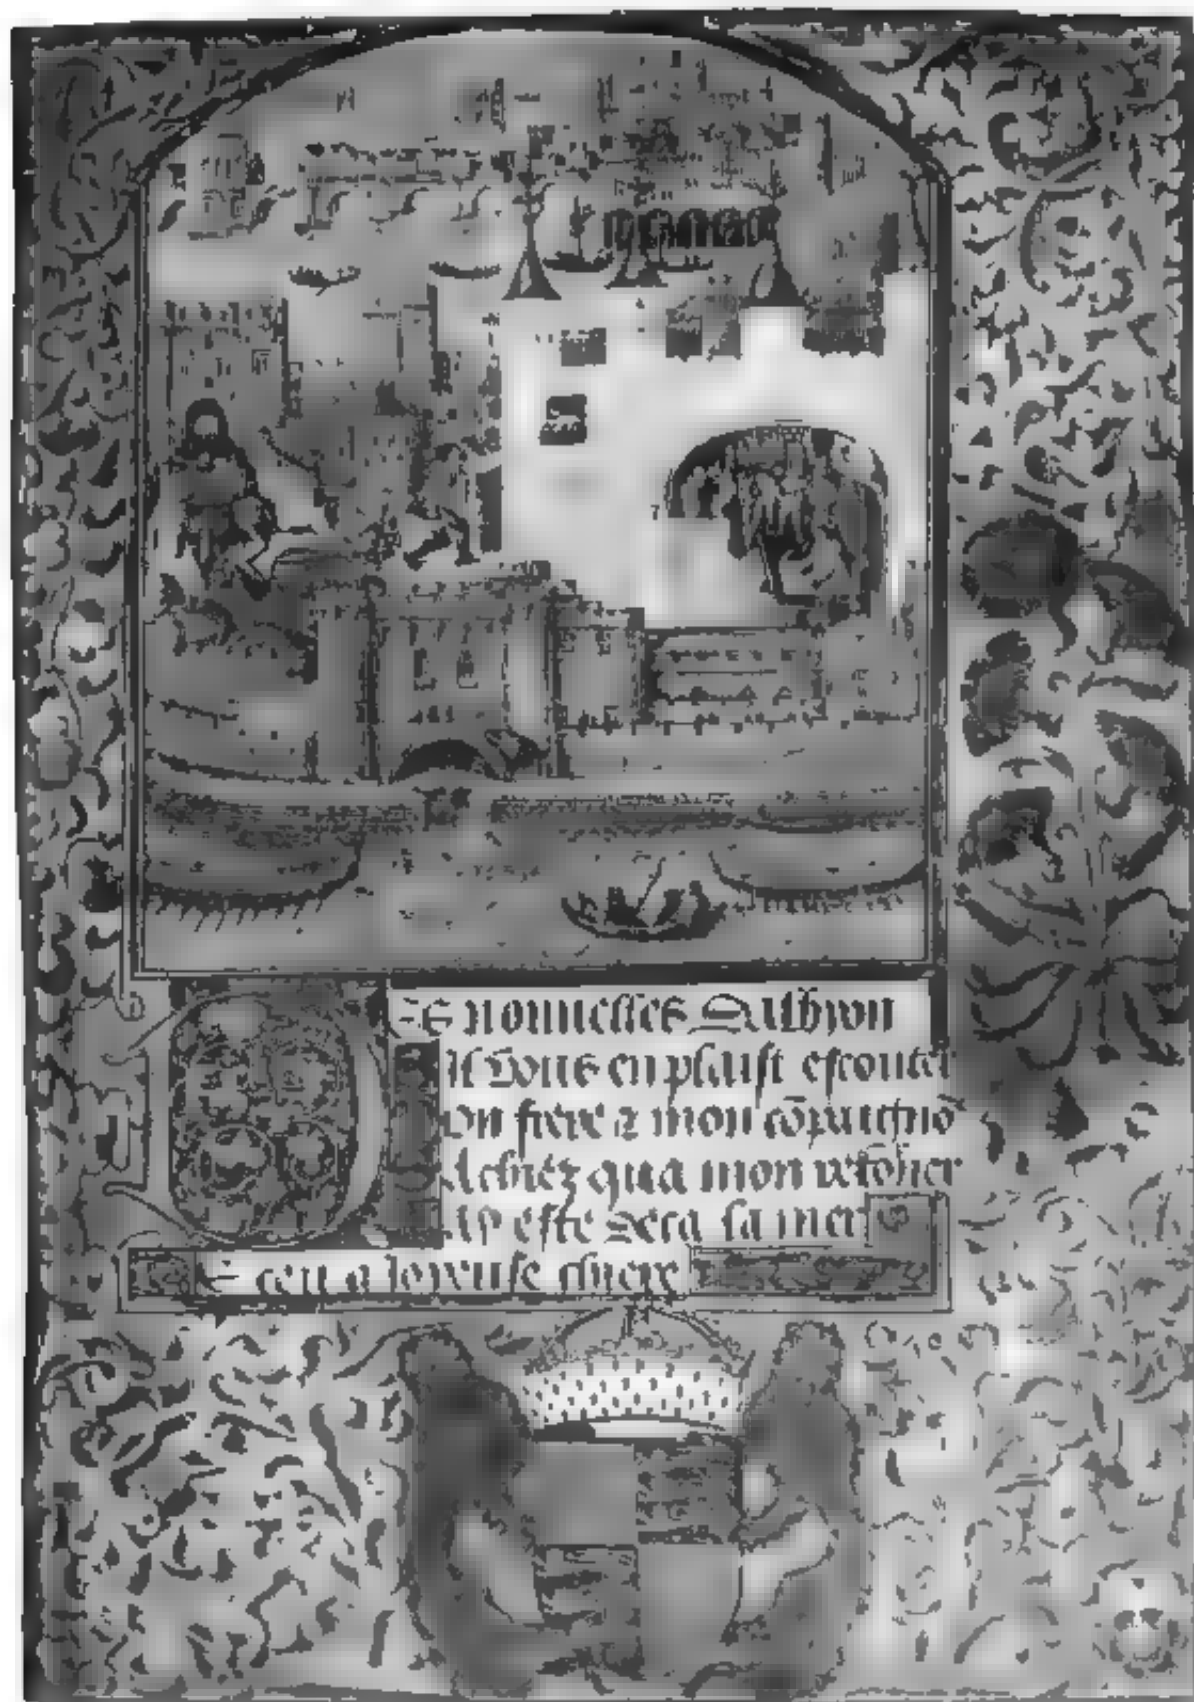 es nouuelles Dalbyon
Il vous en plaist escouter
on frere & mon cōpaignō
achiez qua mon
ay este deca la mer
a ioyeuse chiere